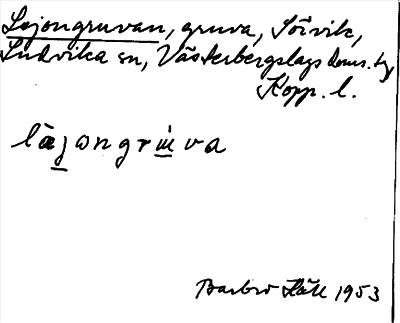 Lejongruvan, gruva, Sörvik,
Ludvika sn, Västerbergslags doms. tg,
Kopp. l.
lä̀jongrúva
Barbro Häll 1953